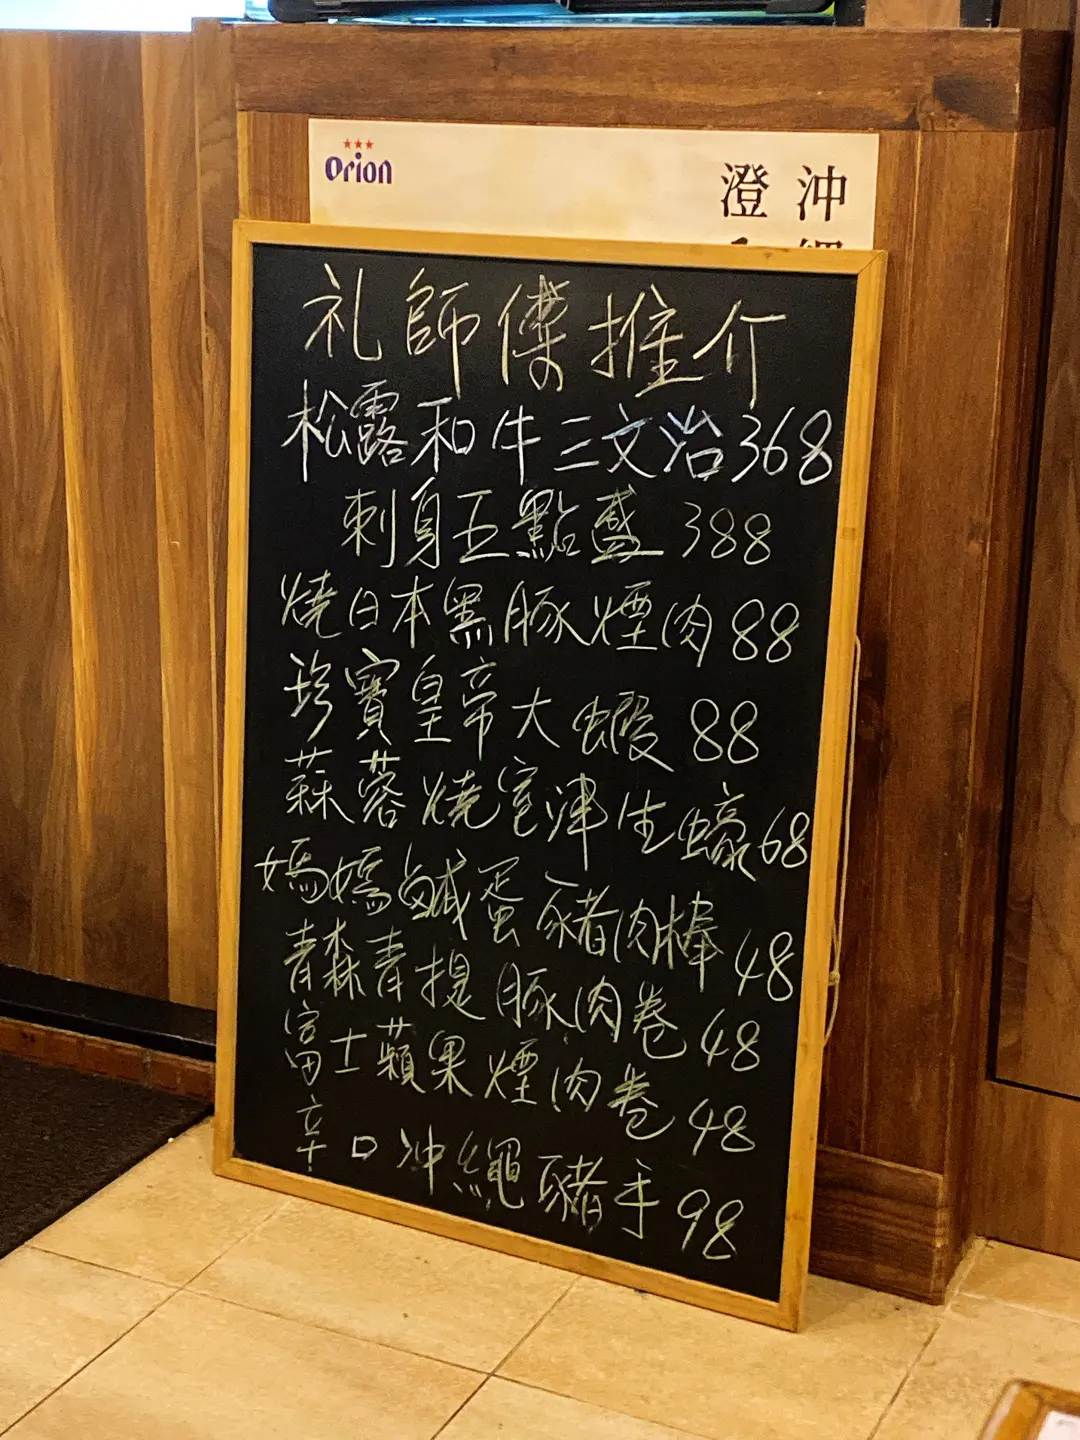 Orion
沖
澄
礼師傅推介
松露和牛三文治368
刺身五點盛 388
燒日本黑豚煙肉 88
珍寶皇帝大蝦 88
蒜蓉燒室津生蠔 68
媽媽鹹蛋豬肉棒 48
青森青提豚肉卷 48
富士蘋果煙肉卷 48
辛口沖繩豬手 98